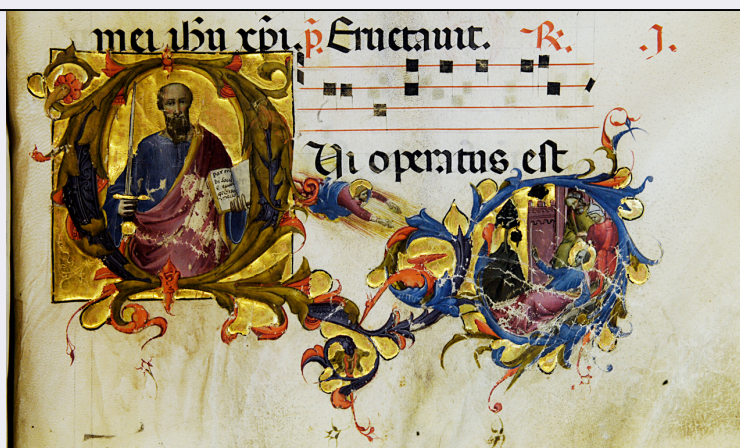 mei ihu xpi. p. Eructauit. R. J.
Qui operatus est